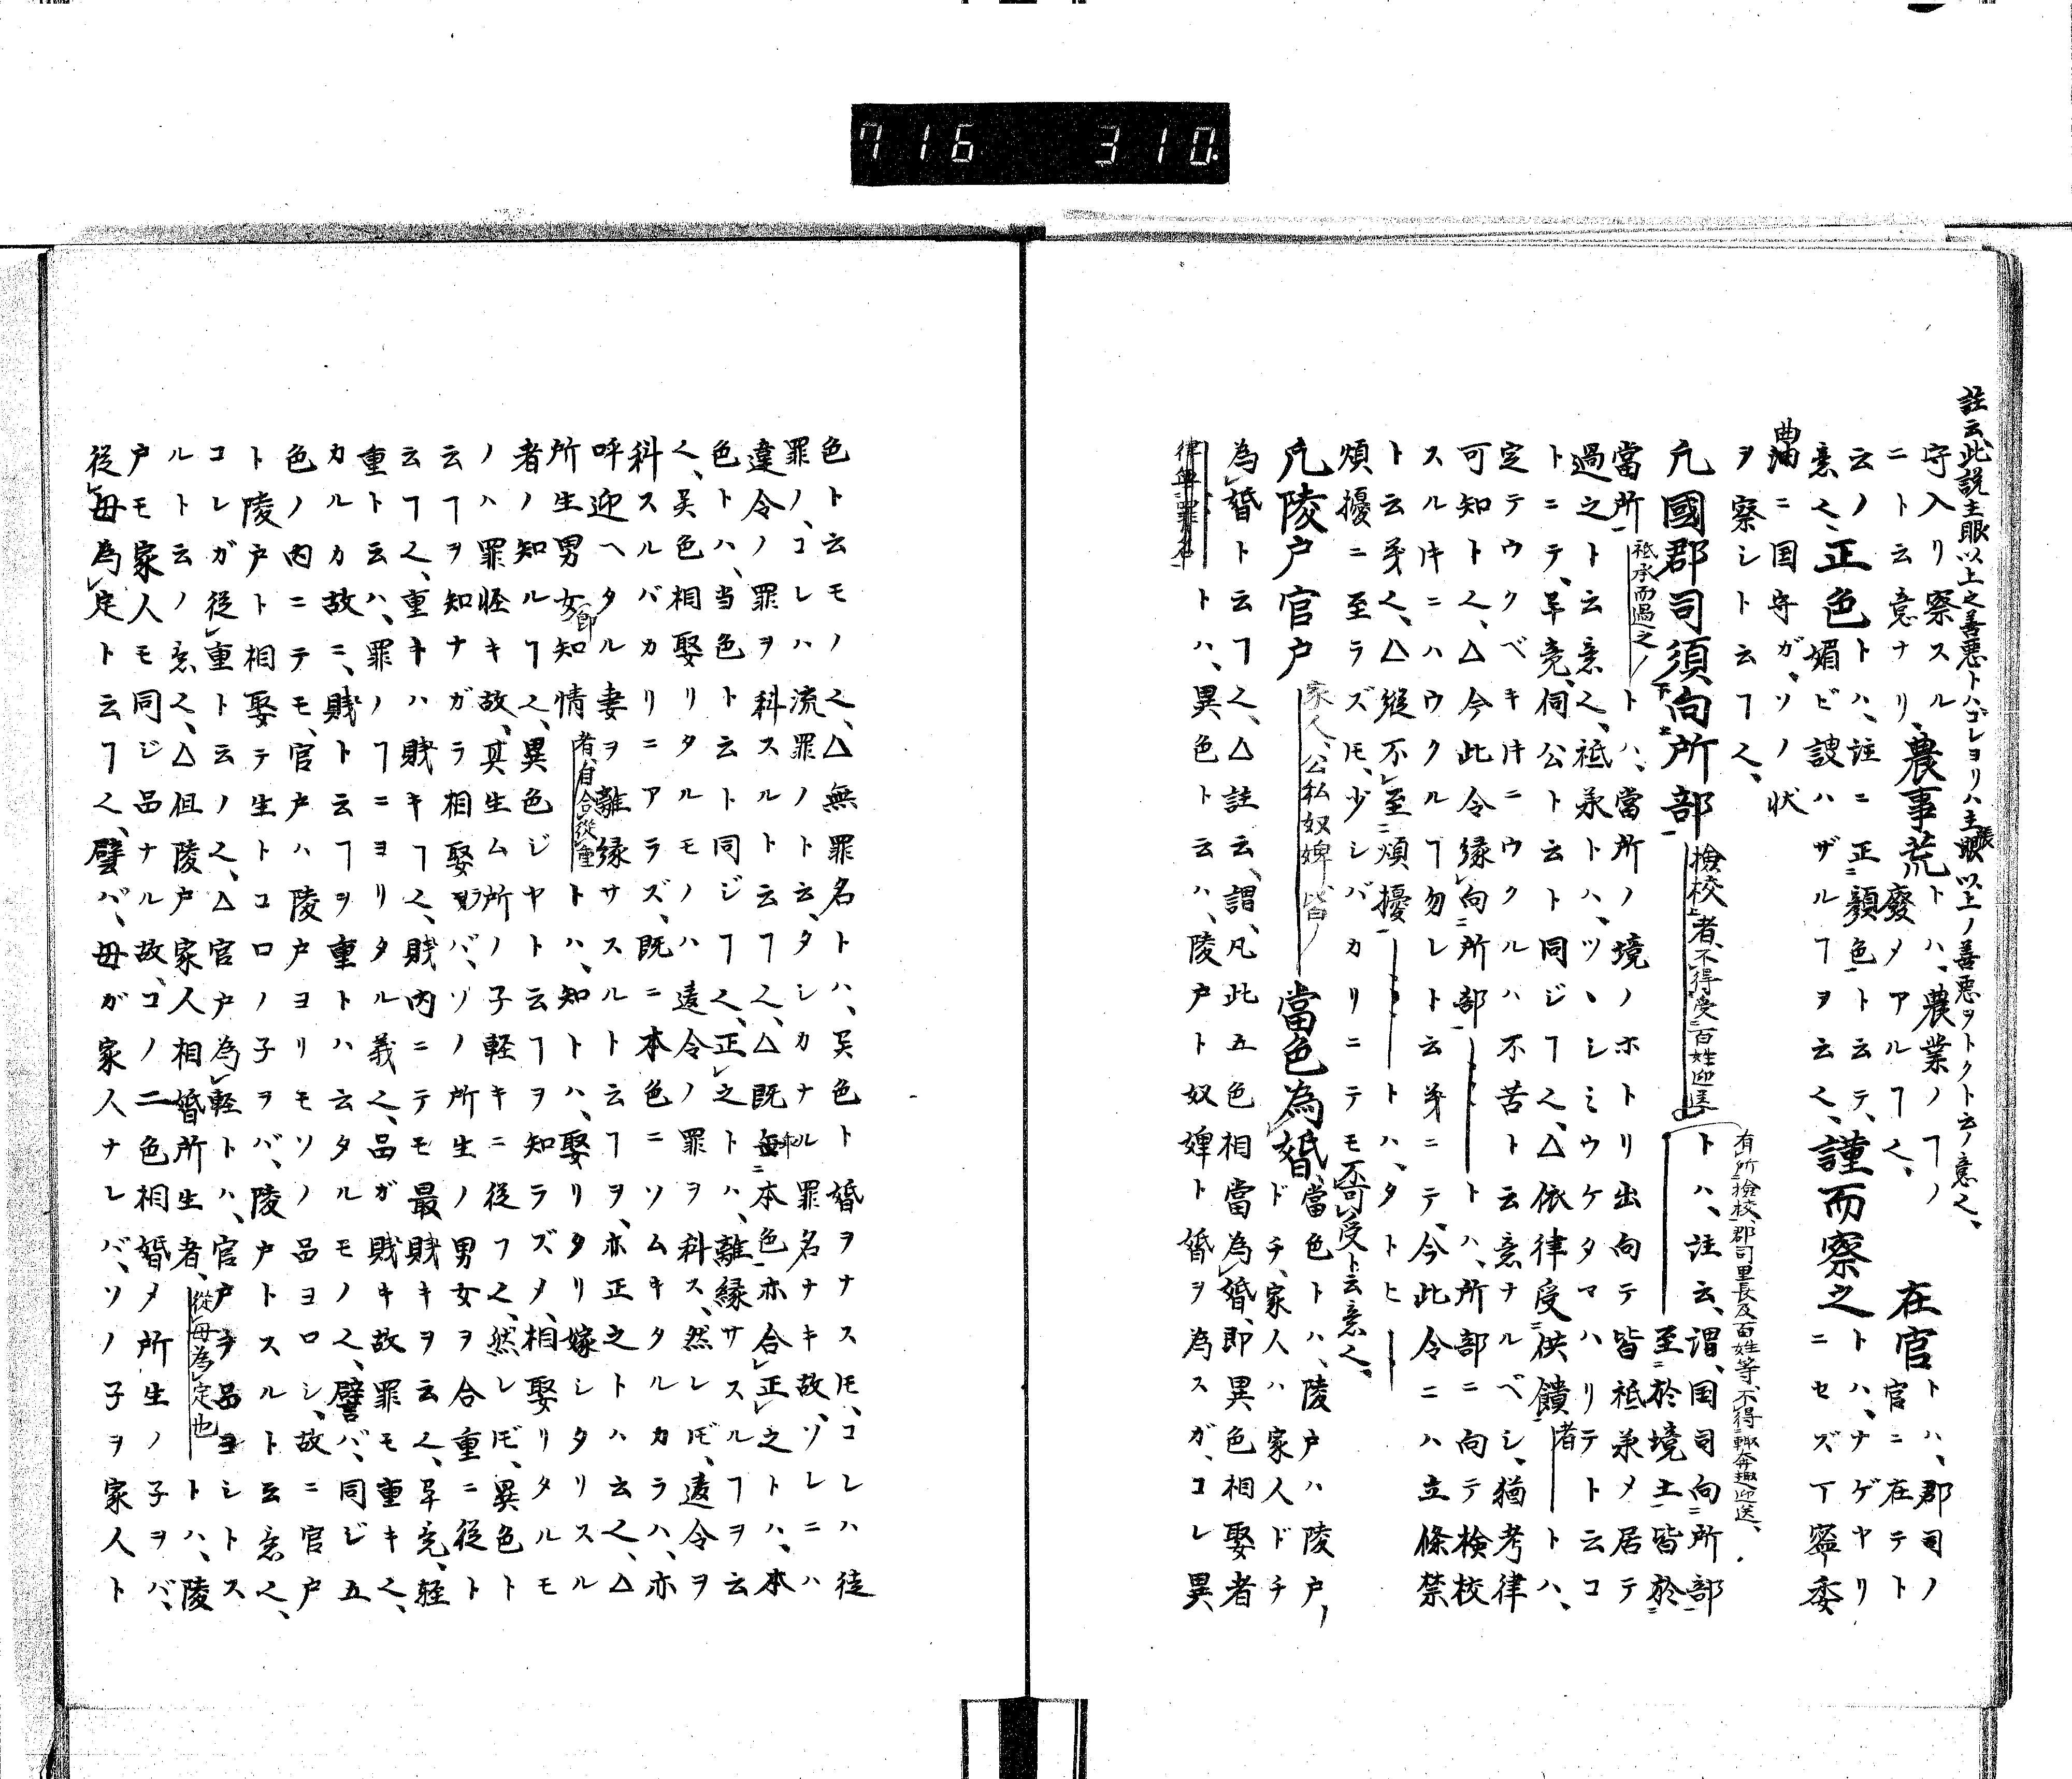 716 310.
註云、此説主眼以上之善悪トハ、コレヨリハ主張以上ノ善悪ヲトクト云ノ意也、
守入リ察スル、農事荒トハ、農業ノ事ノ
ニト云意ナリ、廢メアルヿ也、在官トハ、郡司ノ
云ノトハ、註ニ正顔色トテ、官ニ在テト
意也、正色媚ビ諛ハザルヿヲ云也、謹而察之トハ、ナゲヤリ
曲ニ国守ガ、ソノ状ニセズ丁寧委
ヲ察シト云ヿ也、
凡國郡司須向所部檢校者、不得受百姓迎送トハ、註云、謂、国司向所部
有所檢校、郡司里長及百姓等、不得輙奔趣迎送、
至於境土皆於
當所祗承而過之ノトハ、當所ノ境ノホトリ出向テ皆祗承メ居テ
過之ト云意也、祗承トハ、ツヽシミウケタマハリテト云コ
トニテ、畢竟伺公ト云ト同ジヿ也、△依律受供饋者トハ、
定テウクベキ㐧ニウクルハ不苦ト云意ナルベシ、猶考律
可知ト也、△今此令縁向所部トハ、所部ニ向テ検校
スル㐧ニハウクルヿ勿レト云㐧ニテ、今此令ニハ立條禁
ト云㐧也、△縦不至煩擾トハ、タトヒ
煩擾ニ至ラズ𪜈、少シバカリニテモ不可受ト云意也、
凡陵戸官戸家人、公私奴婢、皆ノ當色為婚當色トハ、陵戸ハ陵戸、
ドチ、家人ハ家人ドチ
為婚ト云ヿ也、△註云、謂、凡此五色相當為婚、即異色相娶者
律無罪名トハ、異色ト云ハ、陵戸ト奴婢ト婚ヲ為スガ、コレ異
色ト云モノ也、△無罪名トハ、异色ト婚ヲナス𪜈、コレハ徒
罪ノ、コレハ流罪ノト云、タシカナル罪名ナキ故、ソレニハ
違令ノ罪ヲ科スルト云ヿ也、△既乖本色亦合正之トハ、本
色トハ、当色ト云ト同ジヿ也、正之トハ、離縁サスルヿヲ云
也、异色相娶リタルモノハ違令ノ罪ヲ科ス、然レ𪜈、違令ヲ
科スルバカリニアラズ、既ニ本色ニソムキタルカラハ、亦
呼迎ヘタル妻ヲ離縁サスルト云ヿヲ、亦正之トハ云也、△
所生男女即知情者、自合從重トハ、知トハ、娶リタリ嫁シタリスル
者ノ知ルヿ也、異色ジヤト云ヿヲ知ラズメ、相娶リタルモ
ノハ罪怪キ故、其生ム所ノ子軽キニ従フ也、然レ𪜈、異色ト
云ヿヲ知ナガラ相娶ラバ、ソノ所生ノ男女ヲ合重ニ従ト
云ヿ也、重キハ賎キヿ也、賎内ニテモ最賎キヲ云也、畢竟、軽
重ト云ハ、罪ノヿニヨリタル義也、品ガ賎キ故罪モ重キ也、
カルカ故ニ、賎ト云ヿヲ重トハ云タルモノ也、譬バ、同ジ五
色ノ内ニテモ、官戸ハ陵戸ヨリモソノ品ヨロシ、故ニ官戸
ト陵戸ト相娶テ生トコロノ子ヲバ、陵戸トスルト云意也、
コレガ従重ト云ノ也、△官戸為軽トハ、官戸ヲ品ヨシトス
ルト云ノ意也、△但陵戸家人相婚所生者、從母為定也トハ、陵
戸モ家人モ同ジ品ナル故、コノ二色相婚メ所生ノ子ヲバ、
従母為定ト云ヿ也、譬バ、母ガ家人ナレバ、ソノ子ヲ家人ト